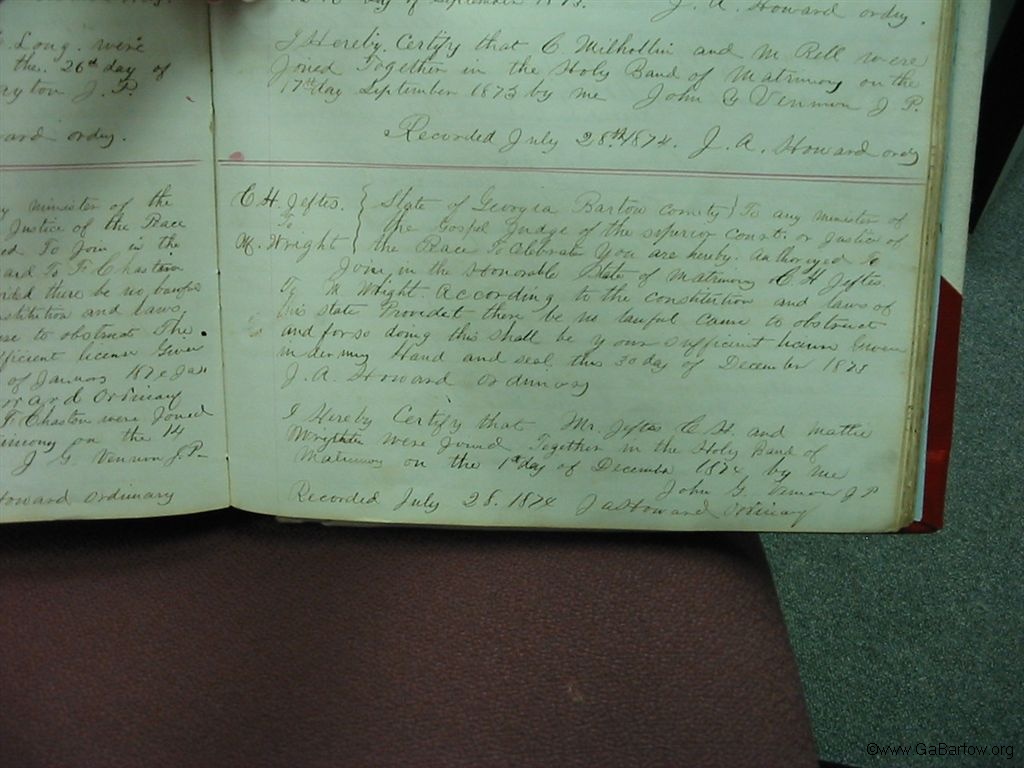 Long. were
the. 26th day of
J. P.
ard ordy.
minister of the
Justice of the Peace
ed To Join in the
and To F Chastain
vided there be no lawful
stitution and Laws
se to obstruct The
fficient license Given
of January 187
Ordinary
F Chaston were Joined
on the 14
J G Venmon J. P
Howard Ordinary
day of September 1873. J. A. Howard ordry.
I Hereby. Certify that C. Milhollin and M. Rell were
Joined Together in the Holy Band of Matrimony on the
17th day September 1873 by me John G Venmon J P.
Recorded July 28th 1874. J. A. Howard ordy
C. H. Jeftes.
To
M. Wright
State of Georgia Bartow County To any minister of
the Gospel Judge of the superior Court. or Justice of
the Peace To Celebrate You are hereby. authorized to
Join in the Honorable State of Matrimony C. H Jeftes
To M Wright. According to the constitution and laws of
this state Providet there be no lawful Cause to obstruct
and for so doing this shall be your sufficient license Given
under my Hand and seal this 30 day of December 1873
J. A. Howard Ordinary
I Hereby Certify that Mr. Jeftes C. H. and Mattie
were Joined Together in the Holy Band of
Matrimony on the 1st day of December 1874 by me
John G. J P
Recorded July 28. 1874 J A Howard Ordinary
©www.GaBartow.org